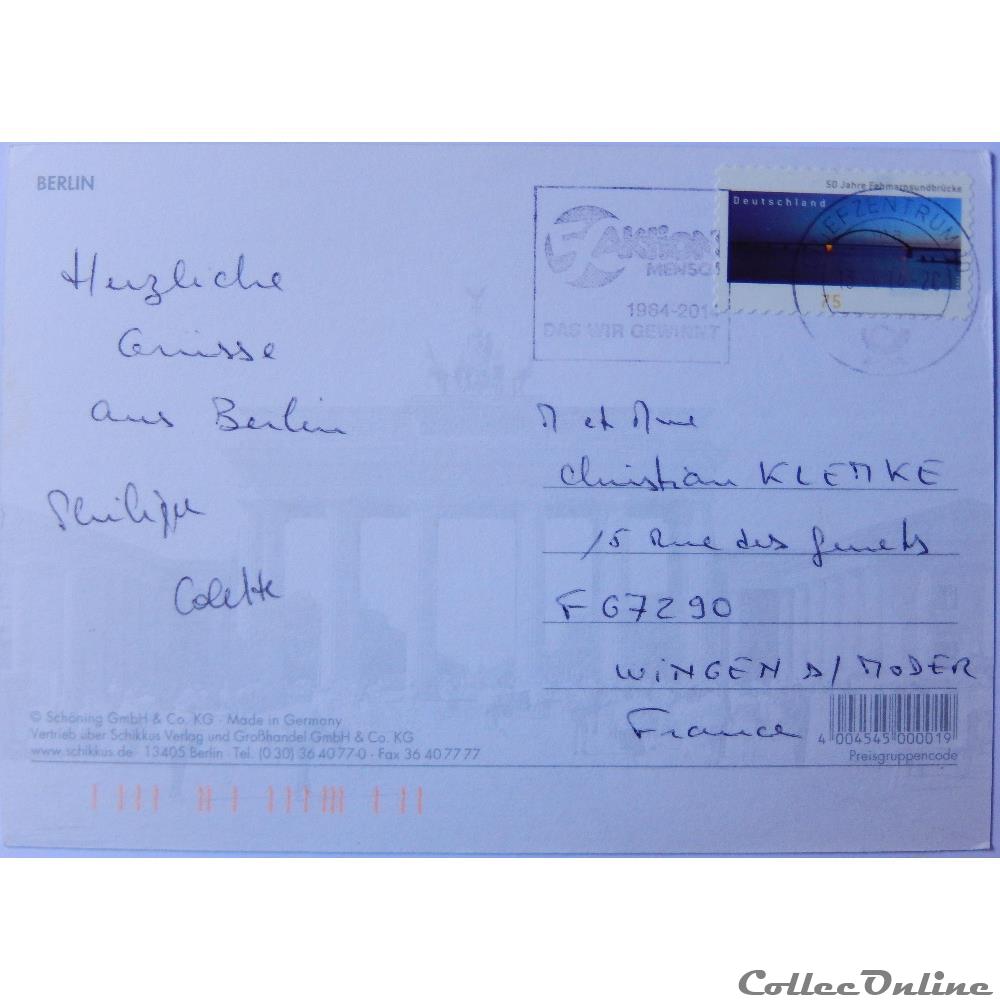 BERLIN
50 Jahre Fehmarnsundbrücke
Deutschland
75
BRIEFZENTRUM
AKTION
MENSCH
1964-2014
DAS WIR GEWINNT
Herzliche
Grüsse
aus Berlin
Philippe
Colette
M et Mme
Christian KLEMKE
15 Rue des Genets
F 67290
WINGEN S/ MODER
France
© Schöning GmbH & Co. KG · Made in Germany
Vertrieb über Schikkus Verlag und Großhandel GmbH & Co. KG
www.schikkus.de · 13405 Berlin · Tel. (0 30) 36 40 77-0 · Fax 36 40 77 77
4 004545 000019
Preisgruppencode
CollecOnline